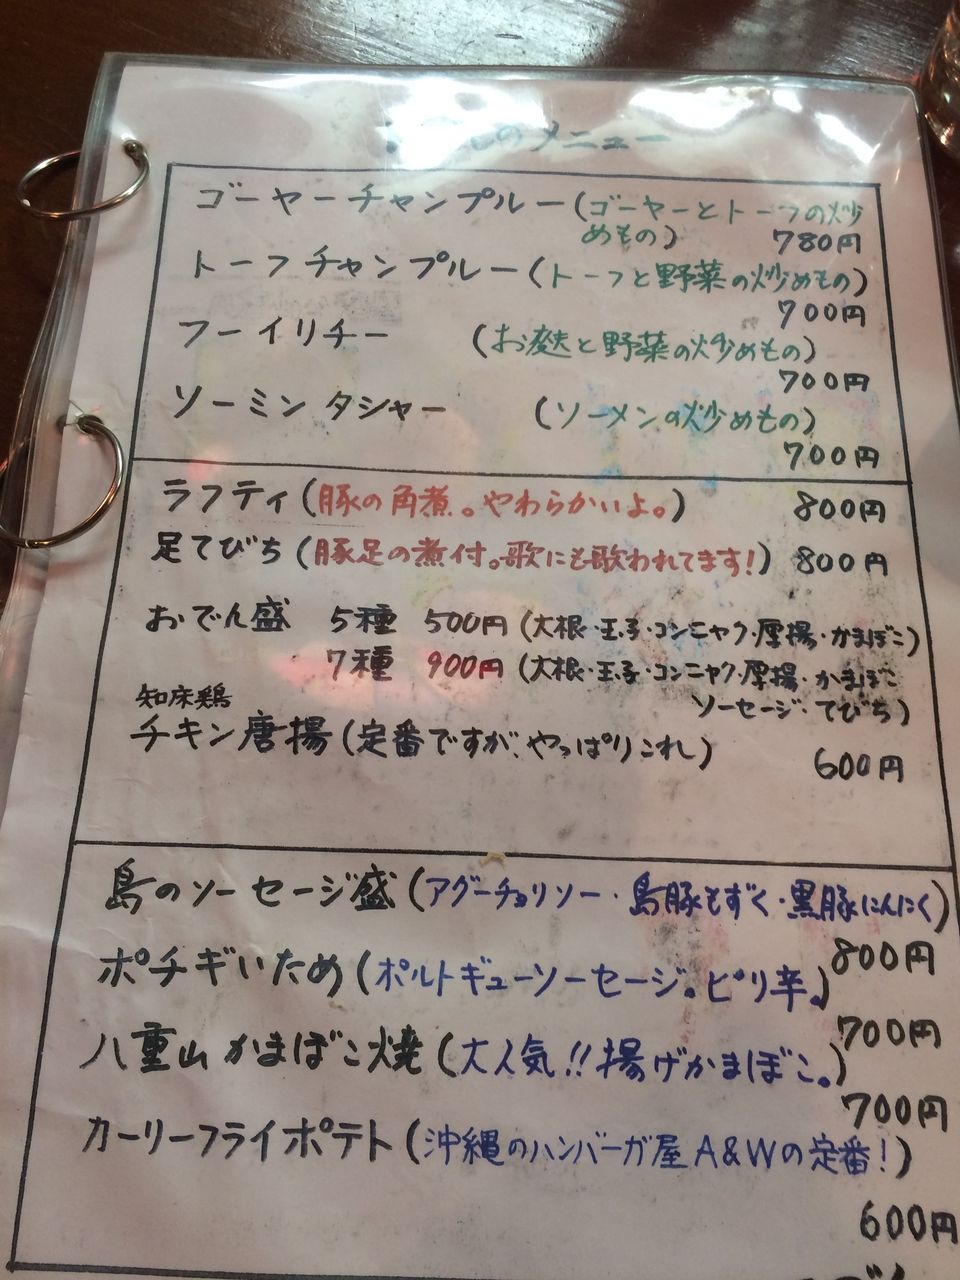 のメニュー
ゴーヤーチャンプルー(ゴーヤーとトーフの炒
めもの) 780円
トーフチャンプルー(トーフと野菜の炒めもの)
700円
フーイリチー (お麩と野菜の炒めもの)
700円
ソーミンタシャー (ソーメンの炒めもの)
700円
ラフティ(豚の角煮。やわらかいよ。) 800円
足てびち(豚足の煮付。歌にも歌われてます!) 800円
おでん盛 5種 500円(大根・玉子・コンニャク・厚揚・かまぼこ)
7種 900円(大根・玉子・コンニャク・厚揚・かまぼこ
ソーセージ・てびち)
知床鶏
チキン唐揚(定番ですが、やっぱりこれ)
600円
島のソーセージ盛(アグーチョリソー・島豚もずく・黒豚にんにく)
800円
ポチギいため(ポルトギューソーセージ。ピリ辛。)
700円
八重山かまぼこ焼(大人気!!揚げかまぼこ。)
700円
カーリーフライポテト(沖縄のハンバーガ屋A&Wの定番!)
600円